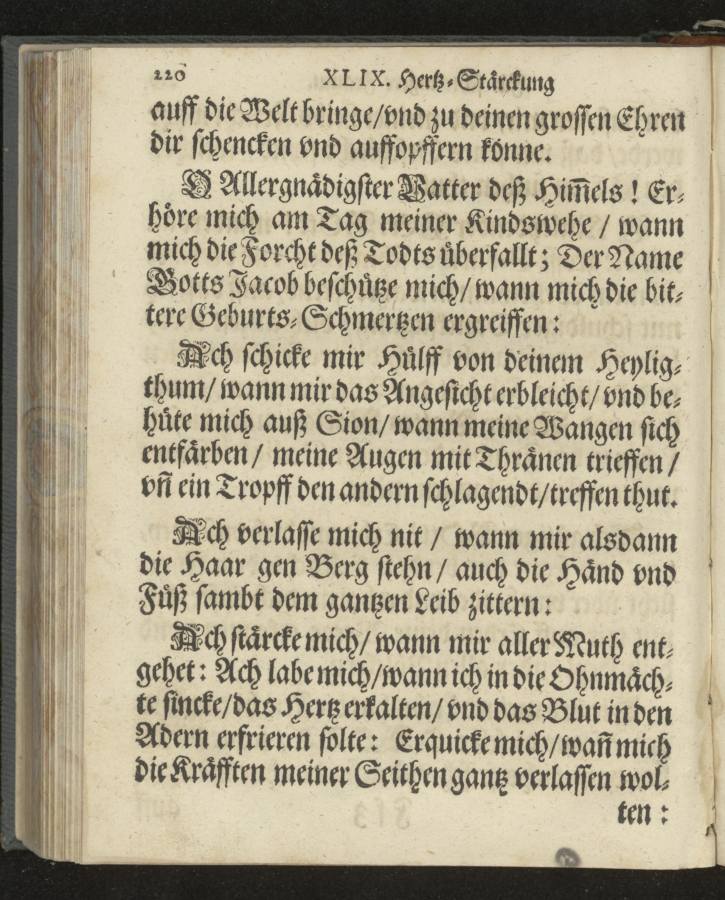 220 XLIX. Hertz-Stärckung
auff die Welt bringe/vnd zu deinen grossen Ehren
dir schencken vnd auffopffern könne.
O Allergnädigster Vatter deß Him̅els ! Er-
höre mich am Tag meiner Kindswehe / wann
mich die Forcht deß Todts überfallt; Der Name
Gotts Jacob beschütze mich/ wann mich die bit-
tere Geburts-Schmertzen ergreiffen:
Ach schicke mir Hülff von deinem Heylig-
thum/ wann mir das Angesicht erbleicht/ vnd be-
hüte mich auß Sion/ wann meine Wangen sich
entfärben / meine Augen mit Thränen trieffen /
vn̅ ein Tropff den andern schlagendt/treffen thut.
Ach verlasse mich nit / wann mir alsdann
die Haar gen Berg stehn / auch die Händ vnd
Füß sambt dem gantzen Leib zittern:
Ach stärcke mich/ wann mir aller Muth ent-
gehet: Ach labe mich/wann ich in die Ohnmäch-
te sincke/das Hertz erkalten/ vnd das Blut in den
Adern erfrieren solte: Erquicke mich/wan̅ mich
die Kräfften meiner Seithen gantz verlassen wol-
ten :